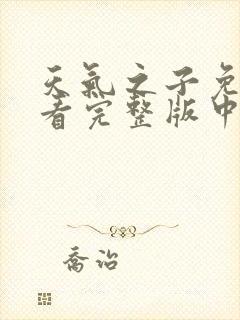 天氣之子免
看完整版中
喬治